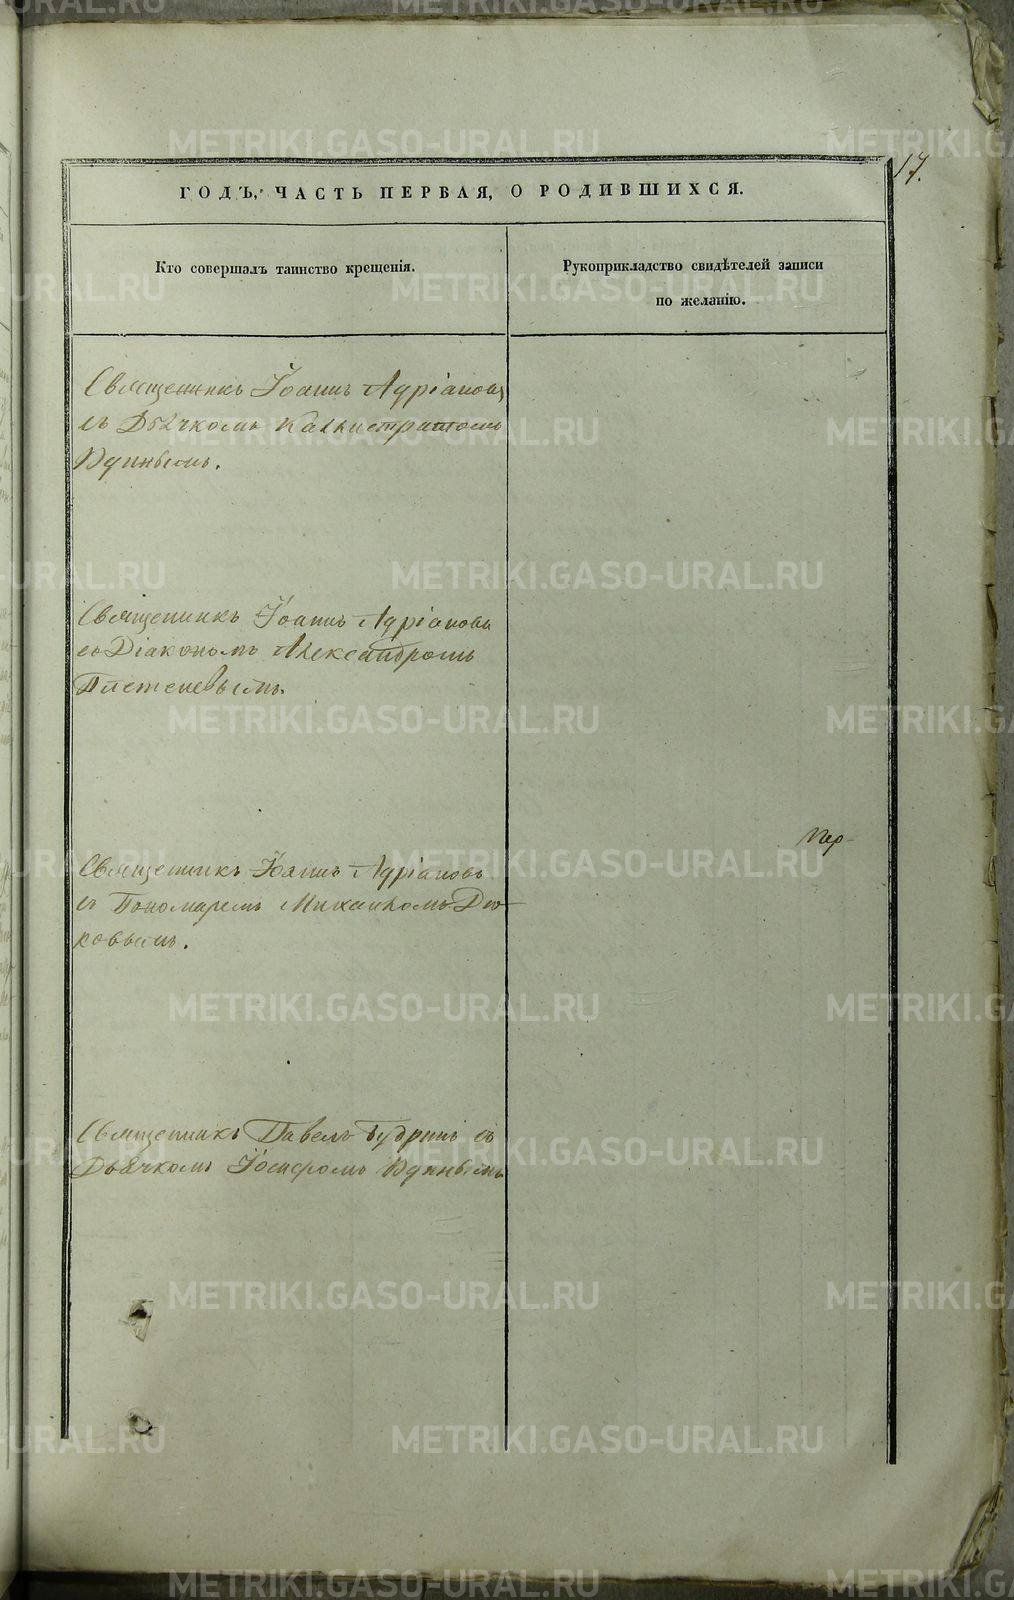 17.
ГОДЪ, ЧАСТЬ ПЕРВАЯ, О РОДИВШИХСЯ.
Кто совершалъ таинство крещенія.
Рукоприкладство свидѣтелей записи
по желанію.
Священникъ Іоаннъ Адріановъ
съ Дьячкомъ Каллистратомъ
Удинымъ.
Священникъ Іоаннъ Адріановъ
со Діакономъ Александромъ
Плетеневымъ.
Священникъ Іоаннъ Адріановъ
съ Пономаремъ Михаиломъ Дю-
ковымъ.
Священникъ Павелъ Будринъ со
Дьячкомъ Іосифомъ Удинымъ
METRIKI.GASO-URAL.RU